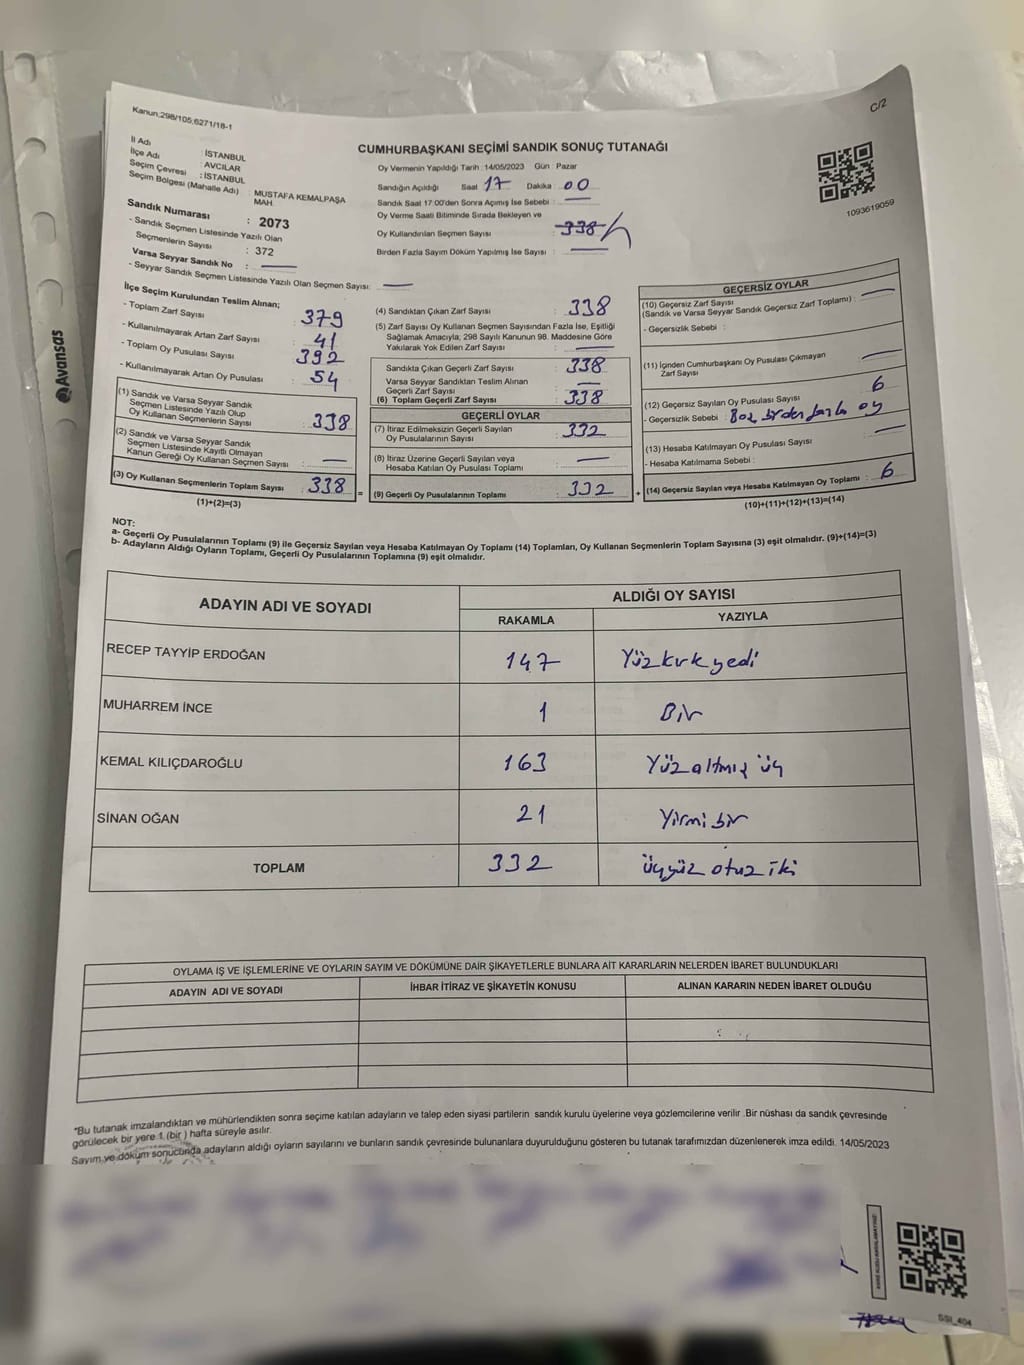 C/2
Kanun;298/105;6271/18-1
CUMHURBAŞKANI SEÇİMİ SANDIK SONUÇ TUTANAĞI
İl Adı : İSTANBUL
İlçe Adı : AVCILAR
Seçim Çevresi : İSTANBUL
Seçim Bölgesi (Mahalle Adı) : MUSTAFA KEMALPAŞA MAH.
Sandık Numarası : 2073
- Sandık Seçmen Listesinde Yazılı Olan
Seçmenlerin Sayısı : 372
Varsa Seyyar Sandık No : —
- Seyyar Sandık Seçmen Listesinde Yazılı Olan Seçmen Sayısı: —
Oy Vermenin Yapıldığı Tarih :14/05/2023 Gün : Pazar
Sandığın Açıldığı Saat 17 Dakika 00
Sandık Saat 17:00'den Sonra Açımış İse Sebebi : —
Oy Verme Saati Bitiminde Sırada Bekleyen ve
Oy Kullandırılan Seçmen Sayısı : 338
Birden Fazla Sayım Döküm Yapılmış İse Sayısı : —
1093619059
İlçe Seçim Kurulundan Teslim Alınan;
- Toplam Zarf Sayısı : 379
- Kullanılmayarak Artan Zarf Sayısı : 41
- Toplam Oy Pusulası Sayısı : 392
- Kullanılmayarak Artan Oy Pusulası : 54
(1) Sandık ve Varsa Seyyar Sandık
Seçmen Listesinde Yazılı Olup
Oy Kullanan Seçmenlerin Sayısı : 338
(2) Sandık ve Varsa Seyyar Sandık
Seçmen Listesinde Kayıtlı Olmayan
Kanun Gereği Oy Kullanan Seçmen Sayısı : —
(3) Oy Kullanan Seçmenlerin Toplam Sayısı : 338 =
(1)+(2)=(3)
(4) Sandıktan Çıkan Zarf Sayısı : 338
(5) Zarf Sayısı Oy Kullanan Seçmen Sayısından Fazla İse, Eşitliği
Sağlamak Amacıyla; 298 Sayılı Kanunun 98. Maddesine Göre
Yakılarak Yok Edilen Zarf Sayısı : —
Sandıkta Çıkan Geçerli Zarf Sayısı : 338
Varsa Seyyar Sandıktan Teslim Alınan
Geçerli Zarf Sayısı : —
(6) Toplam Geçerli Zarf Sayısı : 338
GEÇERLİ OYLAR
(7) İtiraz Edilmeksizin Geçerli Sayılan
Oy Pusulalarının Sayısı : 332
(8) İtiraz Üzerine Geçerli Sayılan veya
Hesaba Katılan Oy Pusulası Toplamı : —
(9) Geçerli Oy Pusulalarının Toplamı : 332 +
GEÇERSİZ OYLAR
(10) Geçersiz Zarf Sayısı
(Sandık ve Varsa Seyyar Sandık Geçersiz Zarf Toplamı) : —
- Geçersizlik Sebebi :
(11) İçinden Cumhurbaşkanı Oy Pusulası Çıkmayan
Zarf Sayısı : —
(12) Geçersiz Sayılan Oy Pusulası Sayısı : 6
- Geçersizlik Sebebi : birden fazla oy
(13) Hesaba Katılmayan Oy Pusulası Sayısı : —
- Hesaba Katılmama Sebebi :
(14) Geçersiz Sayılan veya Hesaba Katılmayan Oy Toplamı : 6
(10)+(11)+(12)+(13)=(14)
NOT:
a- Geçerli Oy Pusulalarının Toplamı (9) ile Geçersiz Sayılan veya Hesaba Katılmayan Oy Toplamı (14) Toplamları, Oy Kullanan Seçmenlerin Toplam Sayısına (3) eşit olmalıdır. (9)+(14)=(3)
b- Adayların Aldığı Oyların Toplamı, Geçerli Oy Pusulalarının Toplamına (9) eşit olmalıdır.
ADAYIN ADI VE SOYADI ALDIĞI OY SAYISI
RAKAMLA YAZIYLA
RECEP TAYYİP ERDOĞAN 147 Yüzkırkyedi
MUHARREM İNCE 1 Bir
KEMAL KILIÇDAROĞLU 163 Yüzaltmış üç
SİNAN OĞAN 21 Yirmi bir
TOPLAM 332 üçyüz otuz iki
OYLAMA İŞ VE İŞLEMLERİNE VE OYLARIN SAYIM VE DÖKÜMÜNE DAİR ŞİKAYETLERLE BUNLARA AİT KARARLARIN NELERDEN İBARET BULUNDUKLARI
ADAYIN ADI VE SOYADI İHBAR İTİRAZ VE ŞİKAYETİN KONUSU ALINAN KARARIN NEDEN İBARET OLDUĞU
*Bu tutanak imzalandıktan ve mühürlendikten sonra seçime katılan adayların ve talep eden siyasi partilerin sandık kurulu üyelerine veya gözlemcilerine verilir .Bir nüshası da sandık çevresinde
görülecek bir yere 1 (bir ) hafta süreyle asılır.
Sayım ve döküm sonucunda adayların aldığı oyların sayılarını ve bunların sandık çevresinde bulunanlara duyurulduğunu gösteren bu tutanak tarafımızdan düzenlenerek imza edildi. 14/05/2023
SSI_404
Avansas